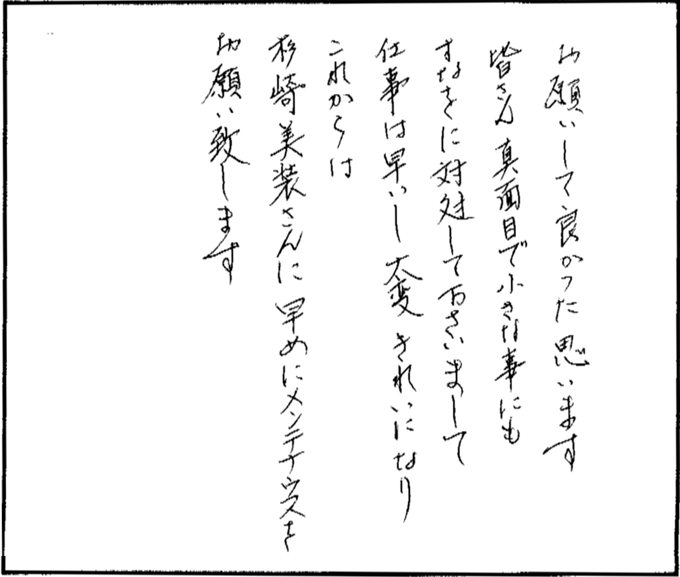 お願いして良かった思います
皆さん真面目で小さな事にも
すなをに対処して下さいまして
仕事は早いし大変きれいになり
これからは
杉崎美装さんに早めにメンテナウスを
お願い致します